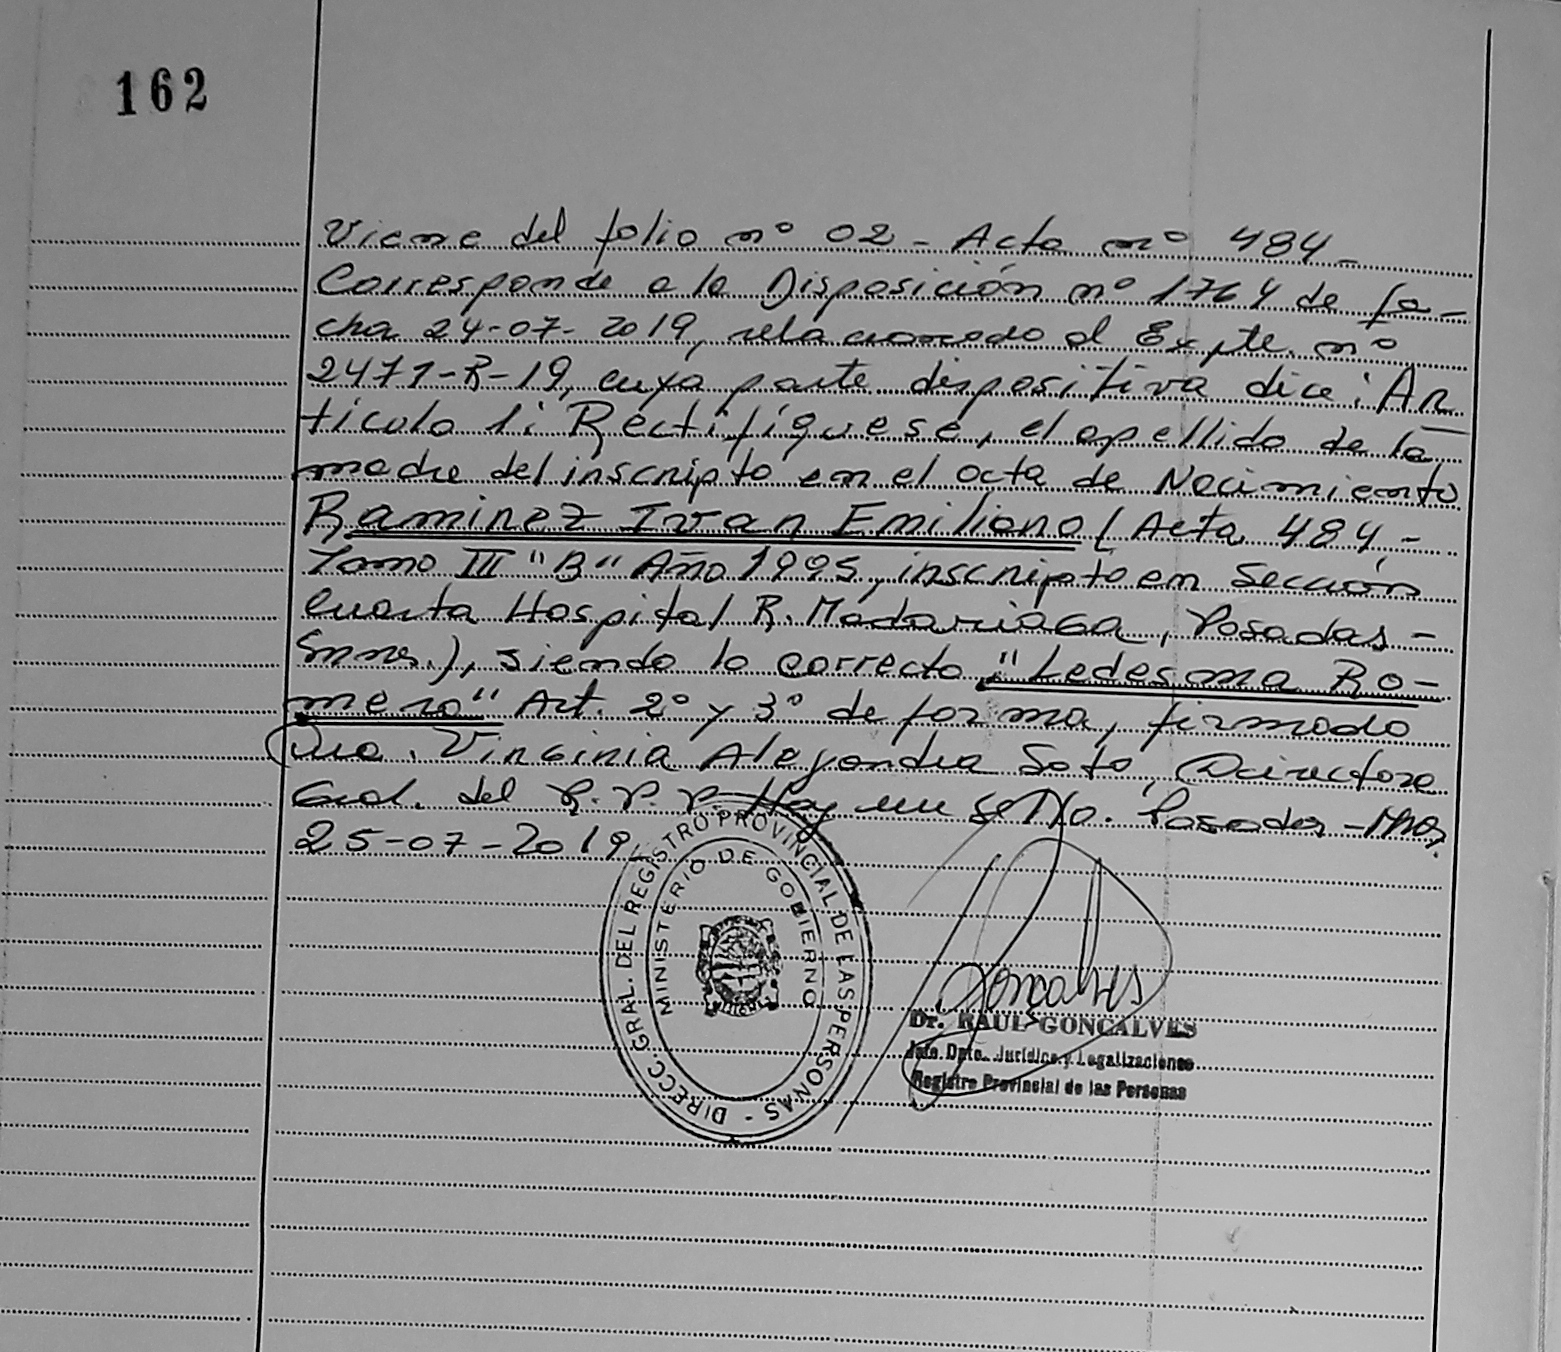 162
Viene del folio nº 02 - Acta nº 484 -
Corresponde a la Disposición nº 1764 de fe-
cha 24-07-2019, relacionado al Expte. nº
2471-R-19, cuya parte dispositiva dice: Ar
tículo 1: Rectifíquese, el apellido de la
madre del inscripto en el acta de Nacimiento
Ramirez Ivan Emiliano (Acta 484 -
Tomo III "B" Año 1995, inscripto en Sección
Cuarta Hospital R. Madariaga, Posadas -
Mnes.), siendo lo correcto "Ledesma Ro-
mero" Art. 2º y 3º de forma, firmado
Dra. Virginia Alejandra Soto, Directora
Gral. del R.P.P. Hay un sello. Posadas - Mnes.
25-07-2019
DIRECC. GRAL. DEL REGISTRO PROVINCIAL DE LAS PERSONAS -
MINISTERIO DE GOBIERNO
Goncalves
Dr. RAUL GONCALVES
Jefe Dpto. Jurídico y Legalizaciones
Registro Provincial de las Personas